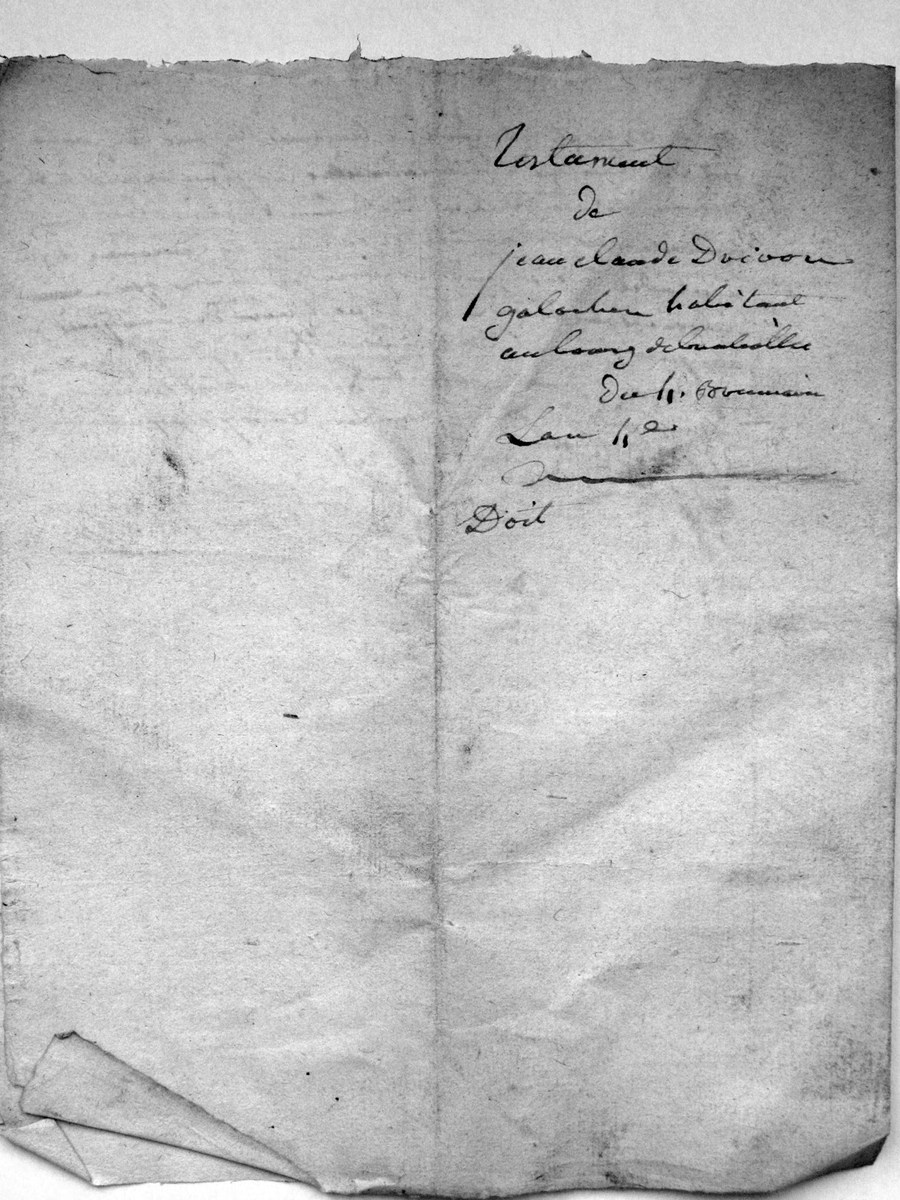 Testament
de
jean claude Doivon
galochier habitant
au bourg de
du 4. Brumaire
Lan 4e
Doit